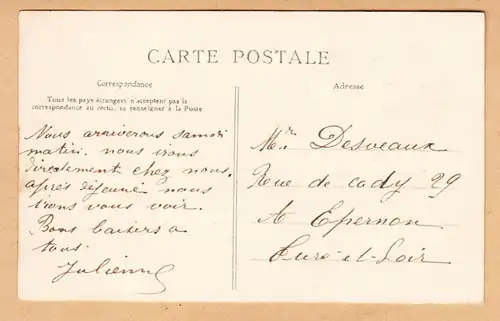 CARTE POSTALE
Correspondance
Tous les pays étrangers n'acceptent pas la
correspondance au recto, se renseigner à la Poste
Nous arriverons samedi
matin. nous irons
directement chez nous.
après déjeuné nous
irons vous voir.
Bons baisers a
tous.
Julienne
Adresse
Mr. Desveaux
Rue de cady 29
A Epernon
Eure-et-Loir